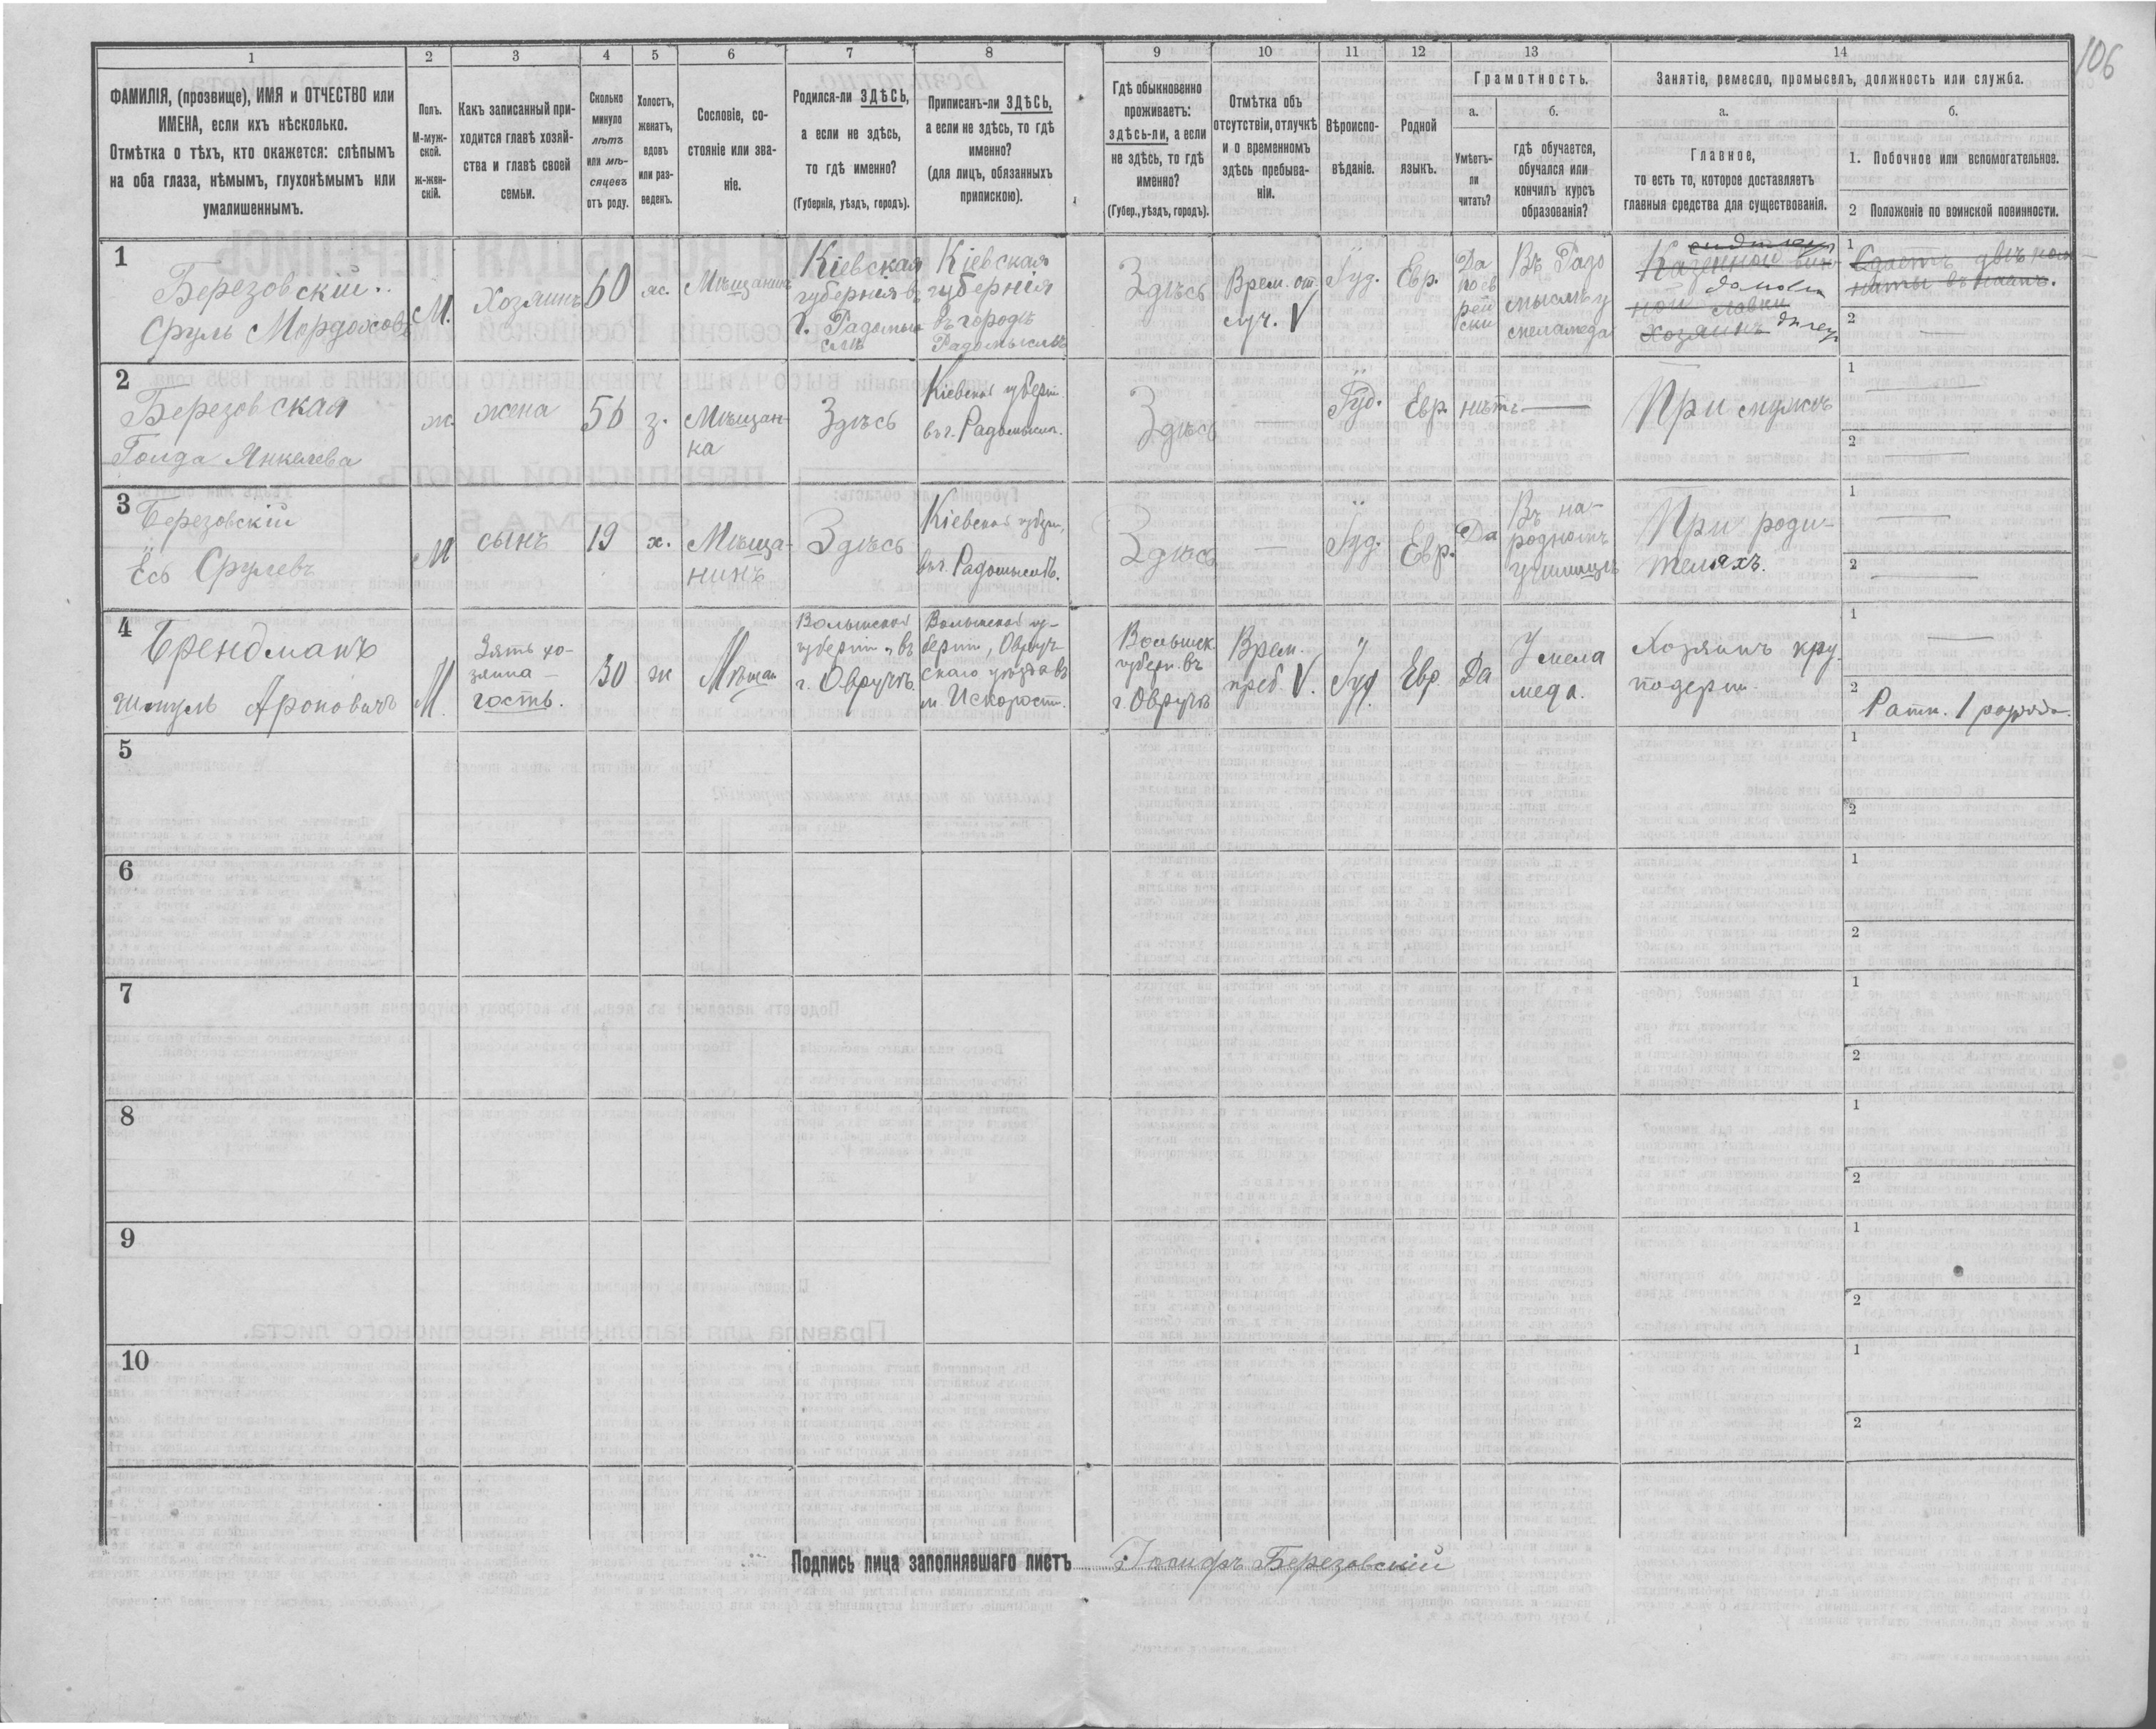 106
1
2
3
4
5
6
7
8
9
10
11
12
13
14
ФАМИЛІЯ, (прозвище), ИМЯ и ОТЧЕСТВО или
ИМЕНА, если ихъ нѣсколько.
Отмѣтка о тѣхъ, кто окажется: слѣпымъ
на оба глаза, нѣмымъ, глухонѣмымъ или
умалишеннымъ.
Полъ.
М-муж-
ской.
ж-жен-
скій.
Какъ записанный при-
ходится главѣ хозяй-
ства и главѣ своей
семьи.
Сколько
минуло
лѣтъ
или мѣ-
сяцевъ
отъ роду.
Холостъ,
женатъ,
вдовъ
или раз-
веденъ.
Сословіе, со-
стояніе или зва-
ніе.
Родился-ли ЗДѢСЬ,
а если не здѣсь,
то гдѣ именно?
(Губернія, уѣздъ, городъ).
Приписанъ-ли ЗДѢСЬ,
а если не здѣсь, то гдѣ
именно?
(для лицъ, обязанныхъ
припискою).
Гдѣ обыкновенно
проживаетъ:
здѣсь-ли, а если
не здѣсь, то гдѣ
именно?
(Губер., уѣздъ, городъ).
Отмѣтка объ
отсутствіи, отлучкѣ
и о временномъ
здѣсь пребыва-
ніи.
Вѣроиспо-
вѣданіе.
Родной
языкъ.
Грамотность.
а.
Умѣетъ-
ли
читать?
б.
гдѣ обучается,
обучался или
кончилъ курсъ
образованія?
Занятіе, ремесло, промыселъ, должность или служба.
а.
Главное,
то есть то, которое доставляетъ
главныя средства для существованія.
б.
1. Побочное или вспомогательное.
2 Положеніе по воинской повинности.
1
Березовскій
Сруль Мордоховъ
М.
Хозяинъ
60
ж.
Мѣщанинъ
Кіевская
губернія въ
г. Радомыс
слѣ
Кіевская
губернія
въ городѣ
Радомыслѣ
Здѣсь
Врем. от
луч. V
Іуд.
Евр.
Да
по ев
рей
ски
Въ Радо
мыслѣ у
меламеда
Казенной вин
ной лавки
хозяинъ
1
Сдаетъ двѣ ком
наты въ наемъ.
2
2
Березовская
Голда Янкелева
ж.
жена
56
з.
Мѣщан-
ка
Здѣсь
Кіевской губерн.
въ г. Радомысл.
Здѣсь
Іуд.
Евр.
нѣтъ
При мужѣ
1
2
3
Березовскій
Ёсь Срулевъ
М
сынъ
19
х.
Мѣща-
нинъ
Здѣсь
Кіевской губерн.
въ г. Радомыслѣ.
Здѣсь
Іуд.
Евр.
Да
Въ на-
родномъ
училищѣ
При роди-
теляхъ.
1
2
4
Брендманъ
Шмуль Ароновичъ
М.
Зять хо-
зяина -
гость.
30
ж
Мѣщан
Волынской
губерніи, въ
г. Овручѣ.
Волынской гу-
берніи, Овруч-
скаго уѣзда въ
м. Искорост.
Волынск.
губерн. въ
г. Овручѣ
Врем.
преб. V.
Іуд.
Евр.
Да
У мела
меда.
Хозяинъ кру
подерни.
1
2
Ратн. 1 разряда.
5
1
2
6
1
2
7
1
2
8
1
2
9
1
2
10
1
2
Подпись лица заполнявшаго листъ Іосифъ Березовскій